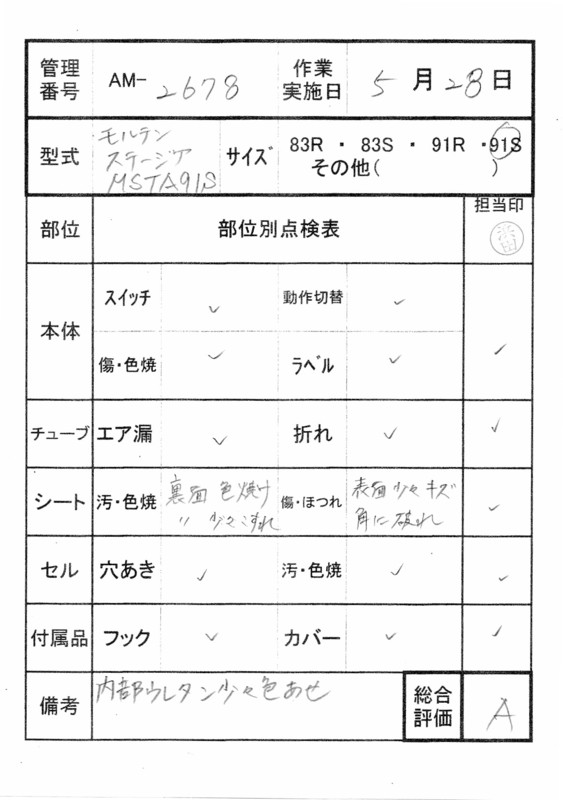 管理番号 AM-2678 作業実施日 5月28日
型式 モルテン ステージア MSTA91S サイズ 83R ・ 83S ・ 91R ・ 91S その他( )
部位 部位別点検表 担当印 浜田
本体 スイッチ ✓ 動作切替 ✓
傷・色焼 ✓ ラベル ✓ ✓
チューブ エア漏 ✓ 折れ ✓ ✓
シート 汚・色焼 裏面 色焼け 〃 少々こすれ 傷・ほつれ 表面少々キズ 角に破れ ✓
セル 穴あき ✓ 汚・色焼 ✓ ✓
付属品 フック ✓ カバー ✓ ✓
備考 内部ウレタン少々色あせ 総合評価 A